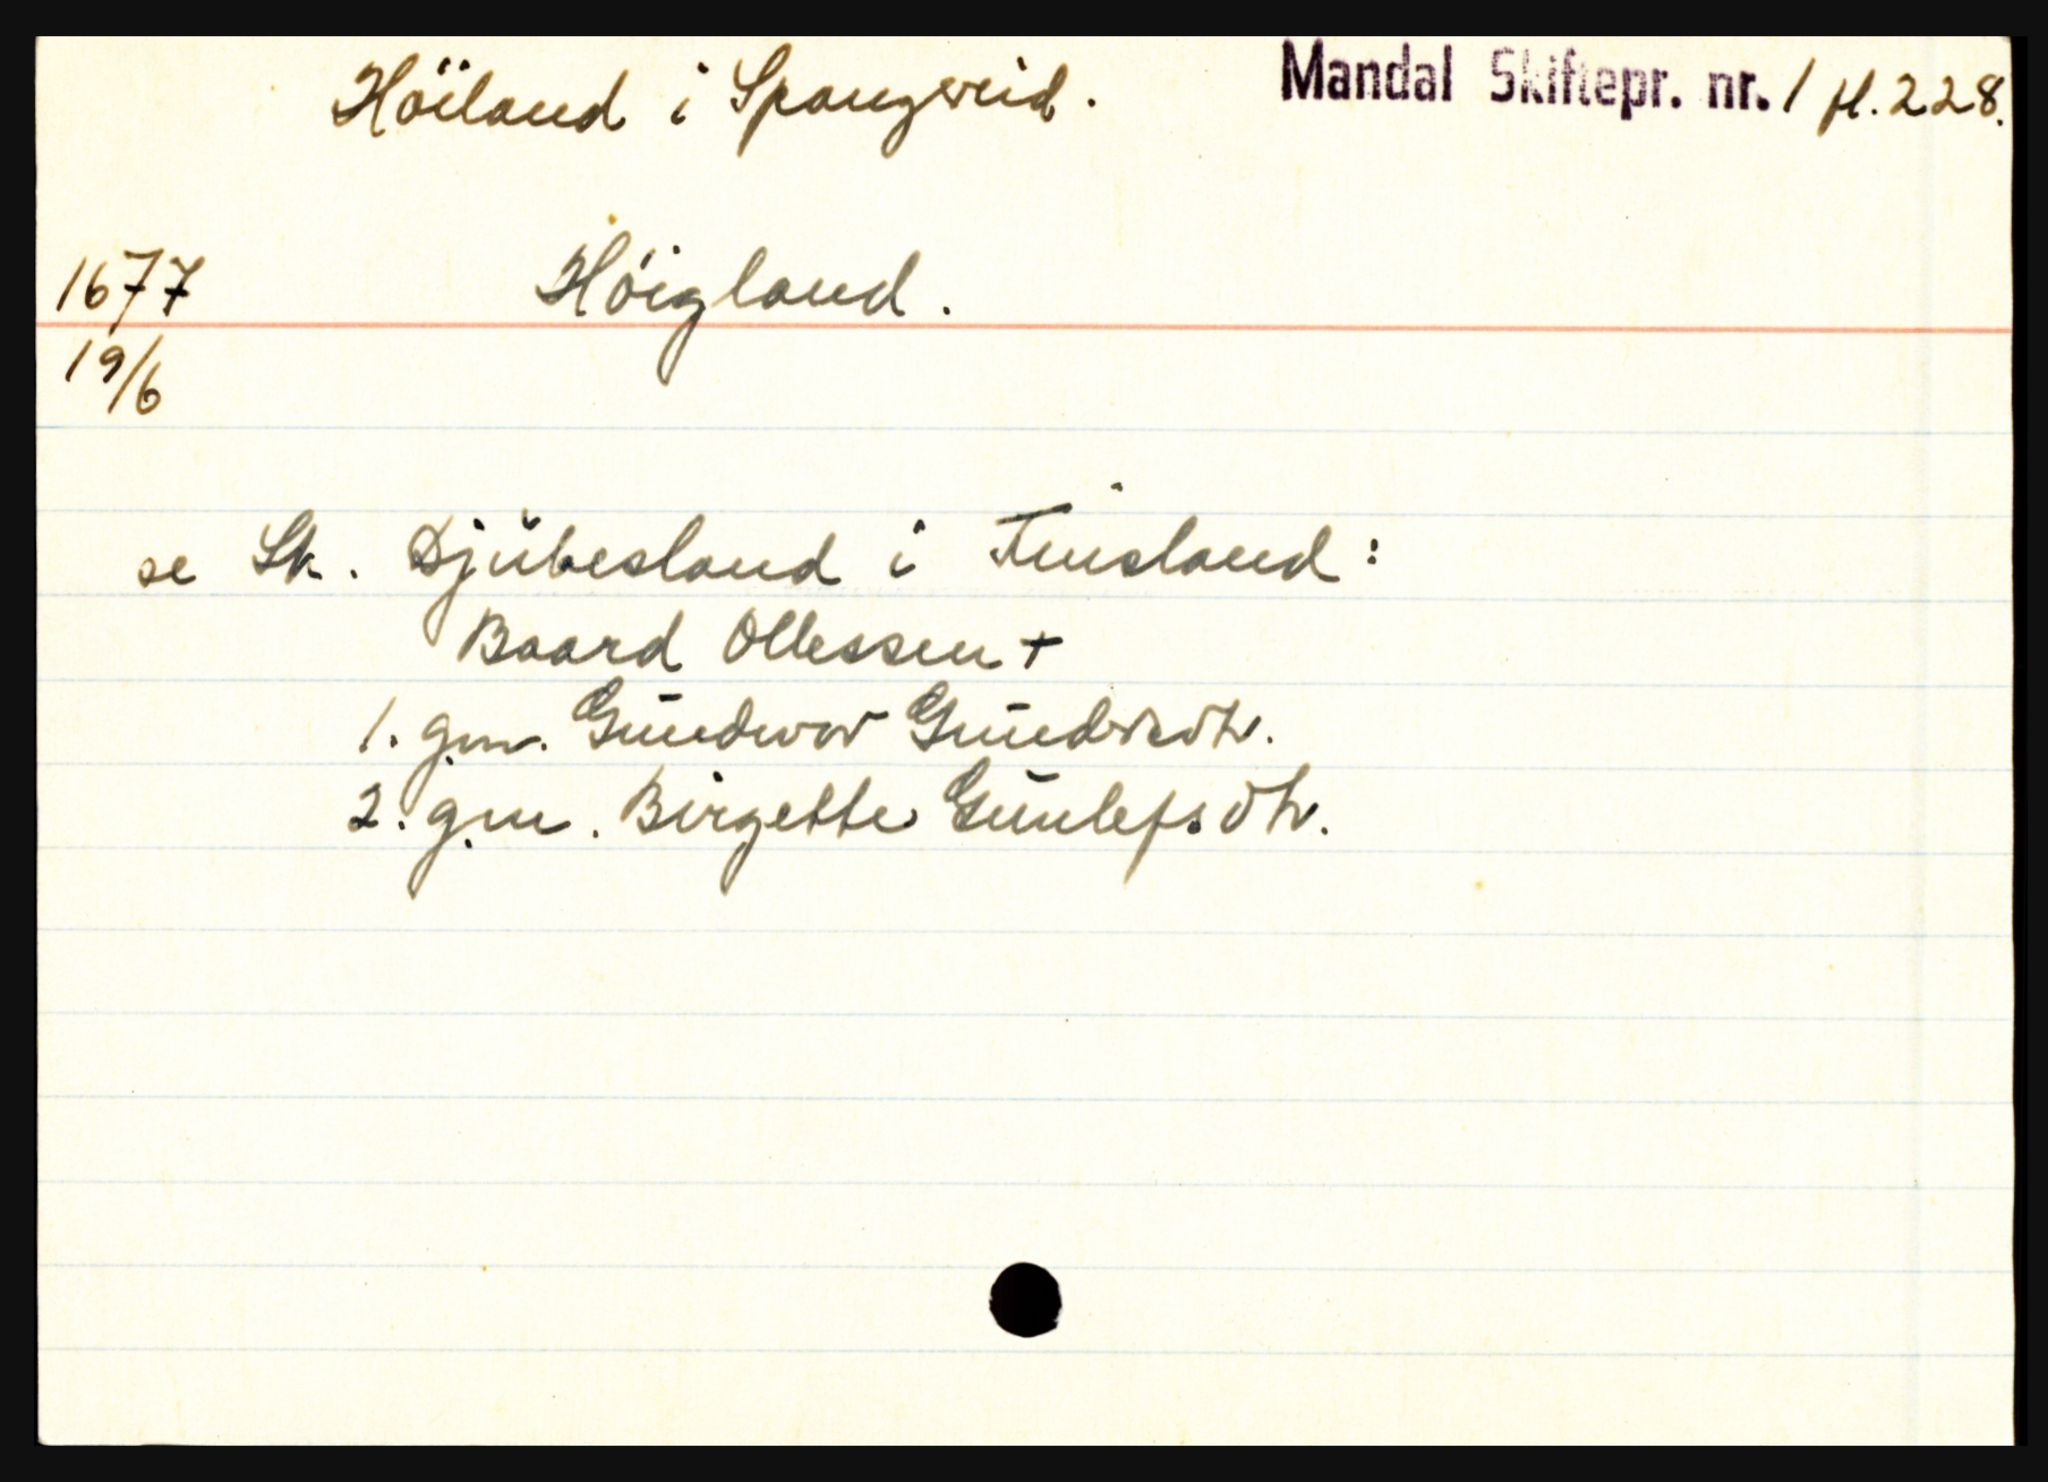 Höiland i Spangereid. Mandal Skiftepr. nr. 1 fl. 228.
1677 Höigland.
19/6
se Sk. Djúbesland i Finsland:
Baard Ollessen +
1. gm. Gundwor
2. gm. Birgette Gunlefsdtr.